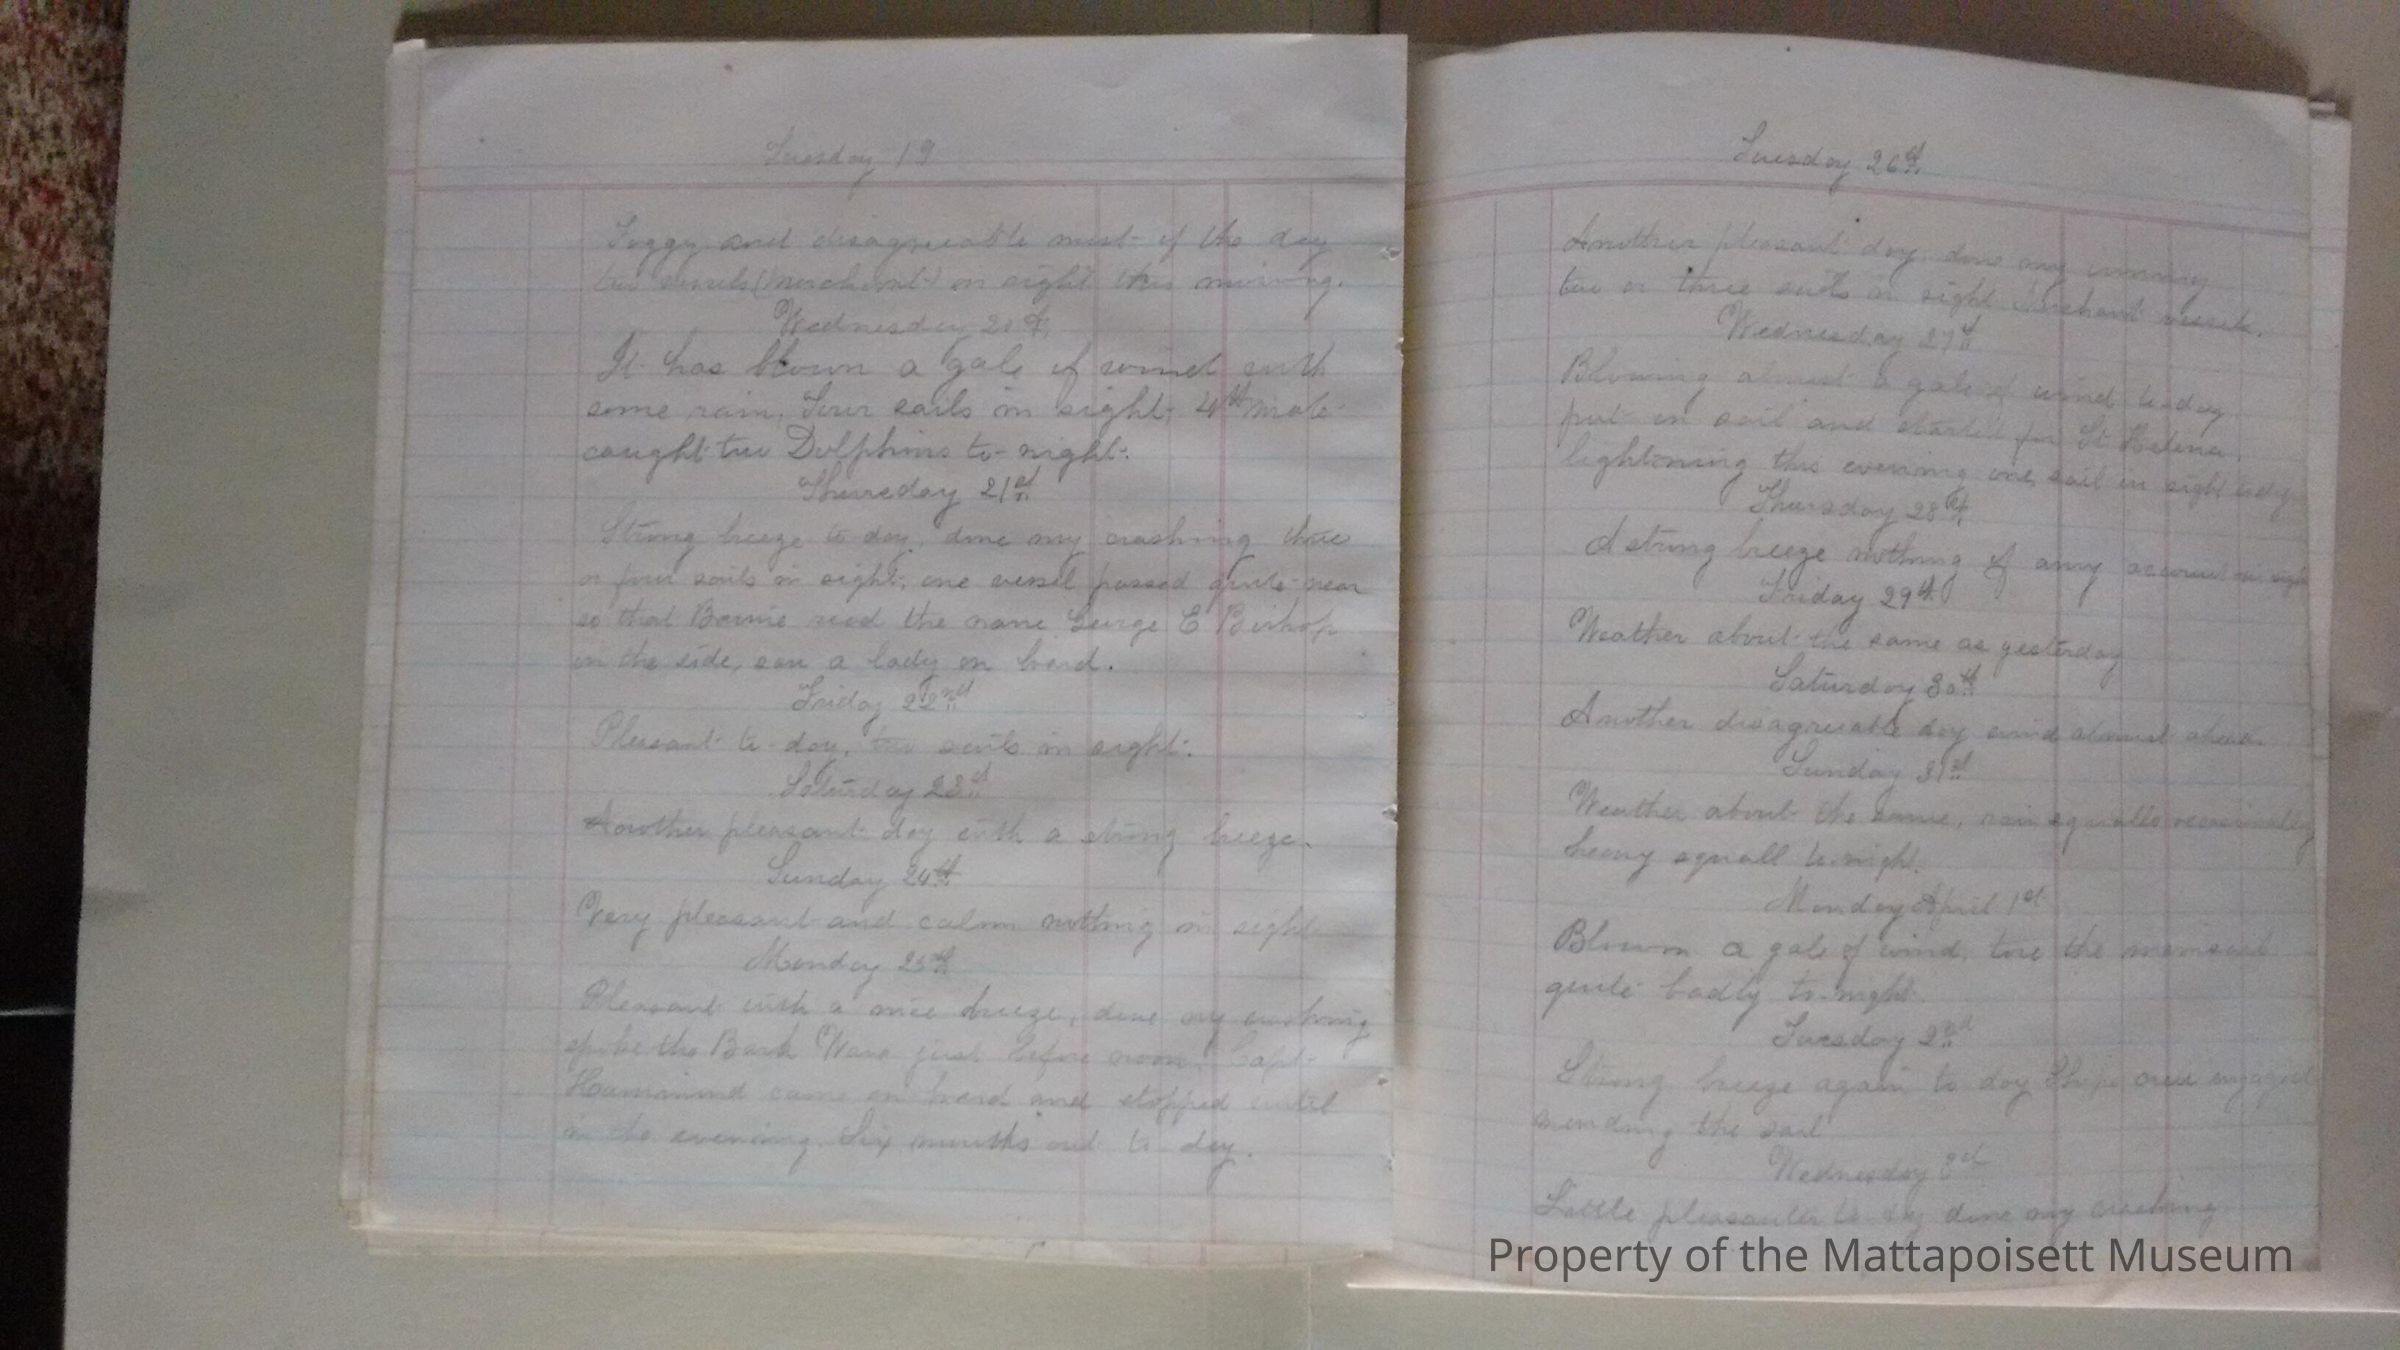 Tuesday 19
Foggy and disagreeable most of the day
two vessels (Merchant) in sight this morning.
Wednesday 20th
It has blown a gale of wind with
some rain, Four sails in sight, 4th mate
caught two Dolphins to-night.
Thursday 21st
Strong breeze to day, done my washing three
or four sails in sight, one vessel passed quite near
so that read the name George E Bishop
on the side, saw a lady on board.
Friday 22nd
Pleasant to-day, two sails in sight.
Saturday 23d
Another pleasant day with a strong breeze.
Sunday 24th
Very pleasant and calm nothing in sight
Monday 25th
Pleasant with a nice breeze, done my washing
spoke the Bark Wave just before noon, Capt
Hammond came on board and stopped until
in the evening. Six months out to day.
Tuesday 26th
Another pleasant day, done my ironing
two or three sails in sight Merchant vessels.
Wednesday 27th
Blowing almost a gale of wind to-day
put on sail and started for St Helena,
lightning this evening one sail in sight to-day
Thursday 28th
A strong breeze nothing of any account in sight
Friday 29th
Weather about the same as yesterday
Saturday 30th
Another disagreeable day wind almost ahead.
Sunday 31st
Weather about the same, rain squalls occasionally
heavy squall to-night.
Monday April 1st
Blown a gale of wind, tore the mainsail
quite badly to-night.
Tuesday 2nd
Strong breeze again to day Ships crew engaged
mending the sail
Wednesday 3d
Little pleasanter to day done my washing
Property of the Mattapoisett Museum